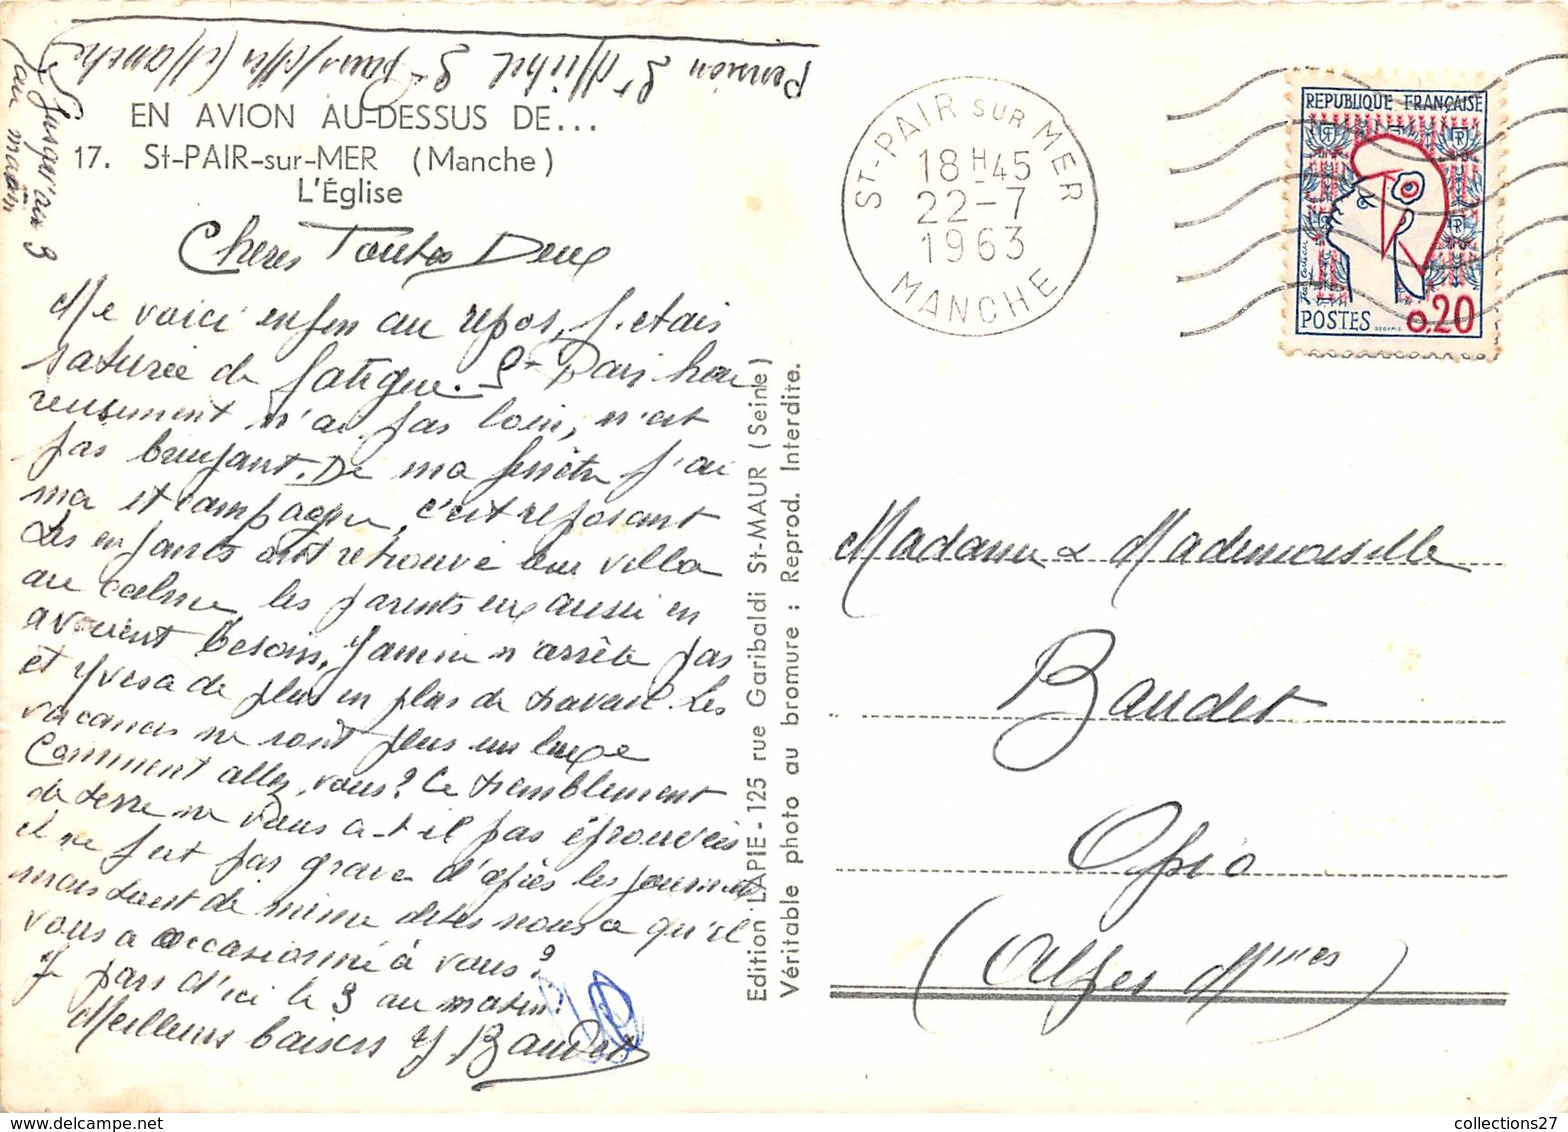 Pension St Michel St pair s/Mer (Manche)
Jusqu'au 3
au matin
EN AVION AU-DESSUS DE...
17. St-PAIR-sur-MER (Manche)
L'Église
Chères Toutes Deux
Me voici enfin au repos, j'étais
saturée de fatigue. St Pair heu
reusement n'est pas loin, n'est
pas bruyant. De ma fenêtre j'ai
mer et campagne, c'est reposant
Les enfants ont retrouvé leur villa
au calme, les parents eux aussi en
avaient besoin, Janine n'arrête pas
et Yves a de plus en plus de travail. Les
vacances ne sont plus un luxe
Comment allez vous? Ce tremblement
de terre ne vous a-t-il pas éprouvées
il ne fut pas grave d'après les journaux
mais tout de même dites nous ce qu'il
vous a occasionné à vous?
Je pars d'ici le 3 au matin.
Meilleurs baisers Y Baudet
Edition LAPIE - 125 rue Garibaldi St-MAUR (Seine)
Véritable photo au bromure : Reprod. Interdite.
ST-PAIR SUR MER
18H45
22-7
1963
MANCHE
REPUBLIQUE FRANÇAISE
POSTES
0.20
Madame & Mademoiselle
Baudet
Opio
(Alpes Mmes)
collections27